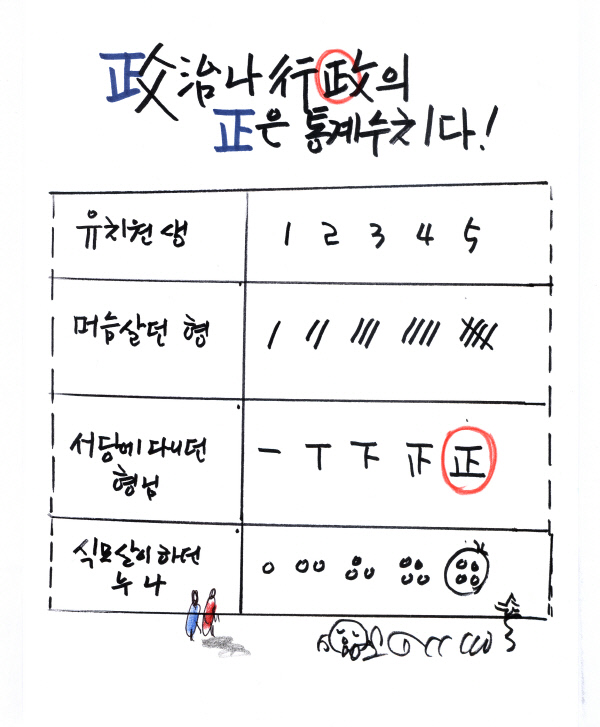 政治나 行政의
正은 통계수치다!
유치원생
1 2 3 4 5
머슴살던 형
/ // /// ////
서당에 다니던
형님
一 丅 下 正
식모살이 하던
누나